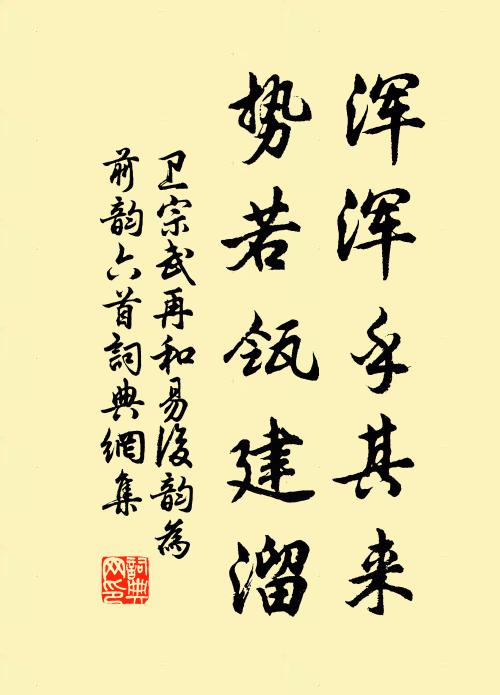 浑浑乎其来
势若瓴建溜
卫宗武再和易后韵为
前韵六首词典网集
詞典网印